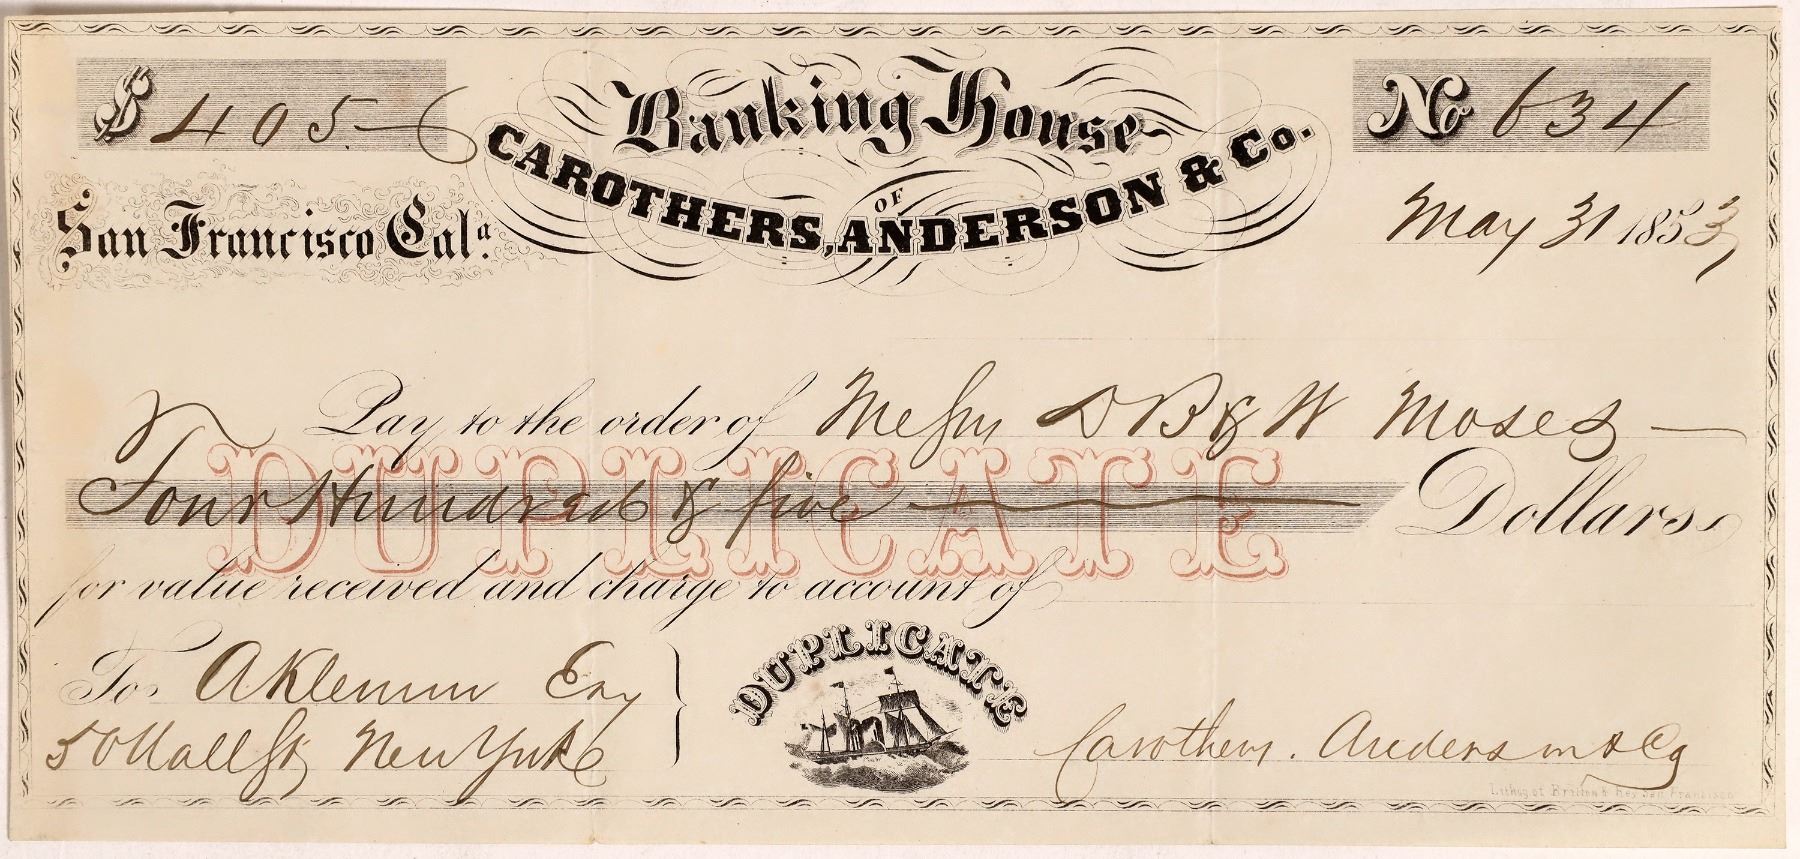 $ 405 —
Banking House
OF
CAROTHERS, ANDERSON & Co.
No 634
San Francisco Cala.
May 31 1853
Pay to the order of Messrs D B & W Moses —
Four Hundred & five — Dollars,
DUPLICATE
for value received and charge to account of
To A Klemm Esq
50 Wall St New York
DUPLICATE
Carothers. Anderson & Co
Lithog. of Britton & Rey San Francisco